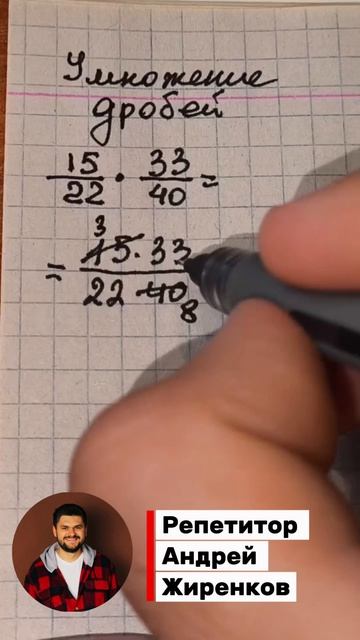 Умножение
дробей
15/22 · 33/40 =
3
= 15·33/22 40
8
Репетитор
Андрей
Жиренков